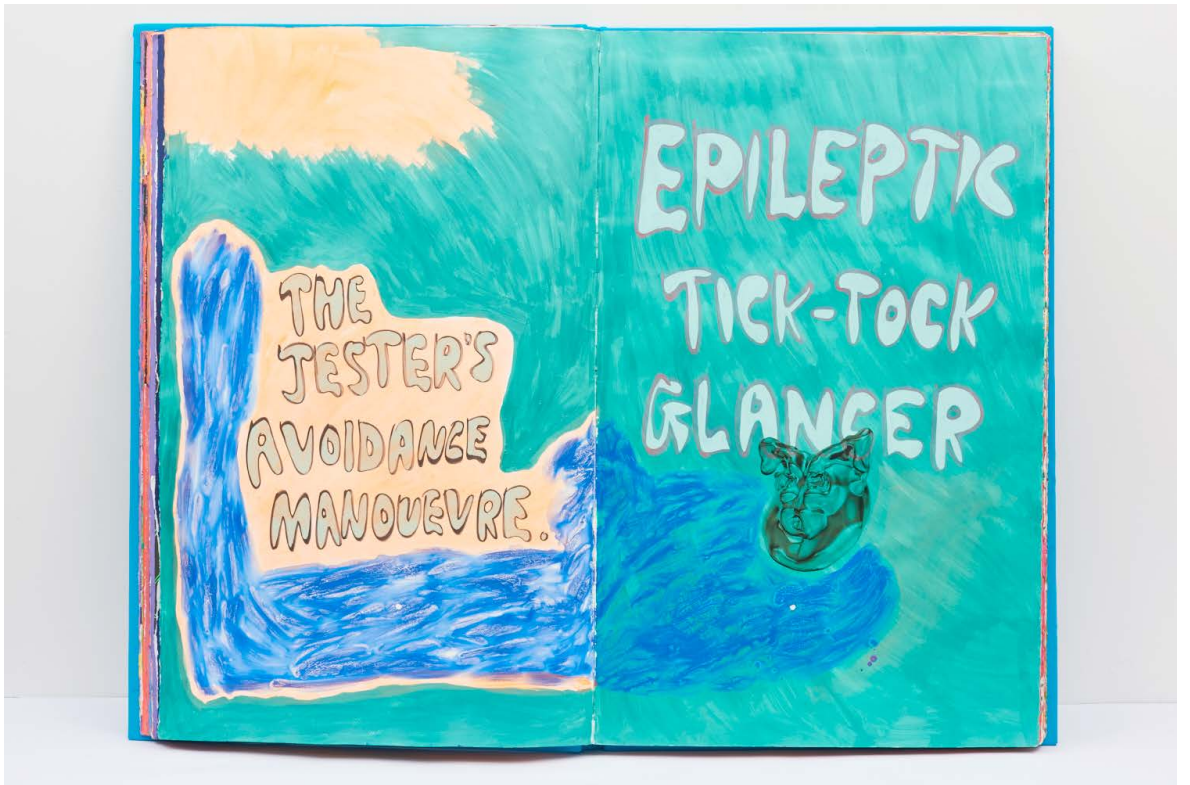 THE
JESTER'S
AVOIDANCE
MANOUEVRE.
EPILEPTIC
TICK-TOCK
GLANCER